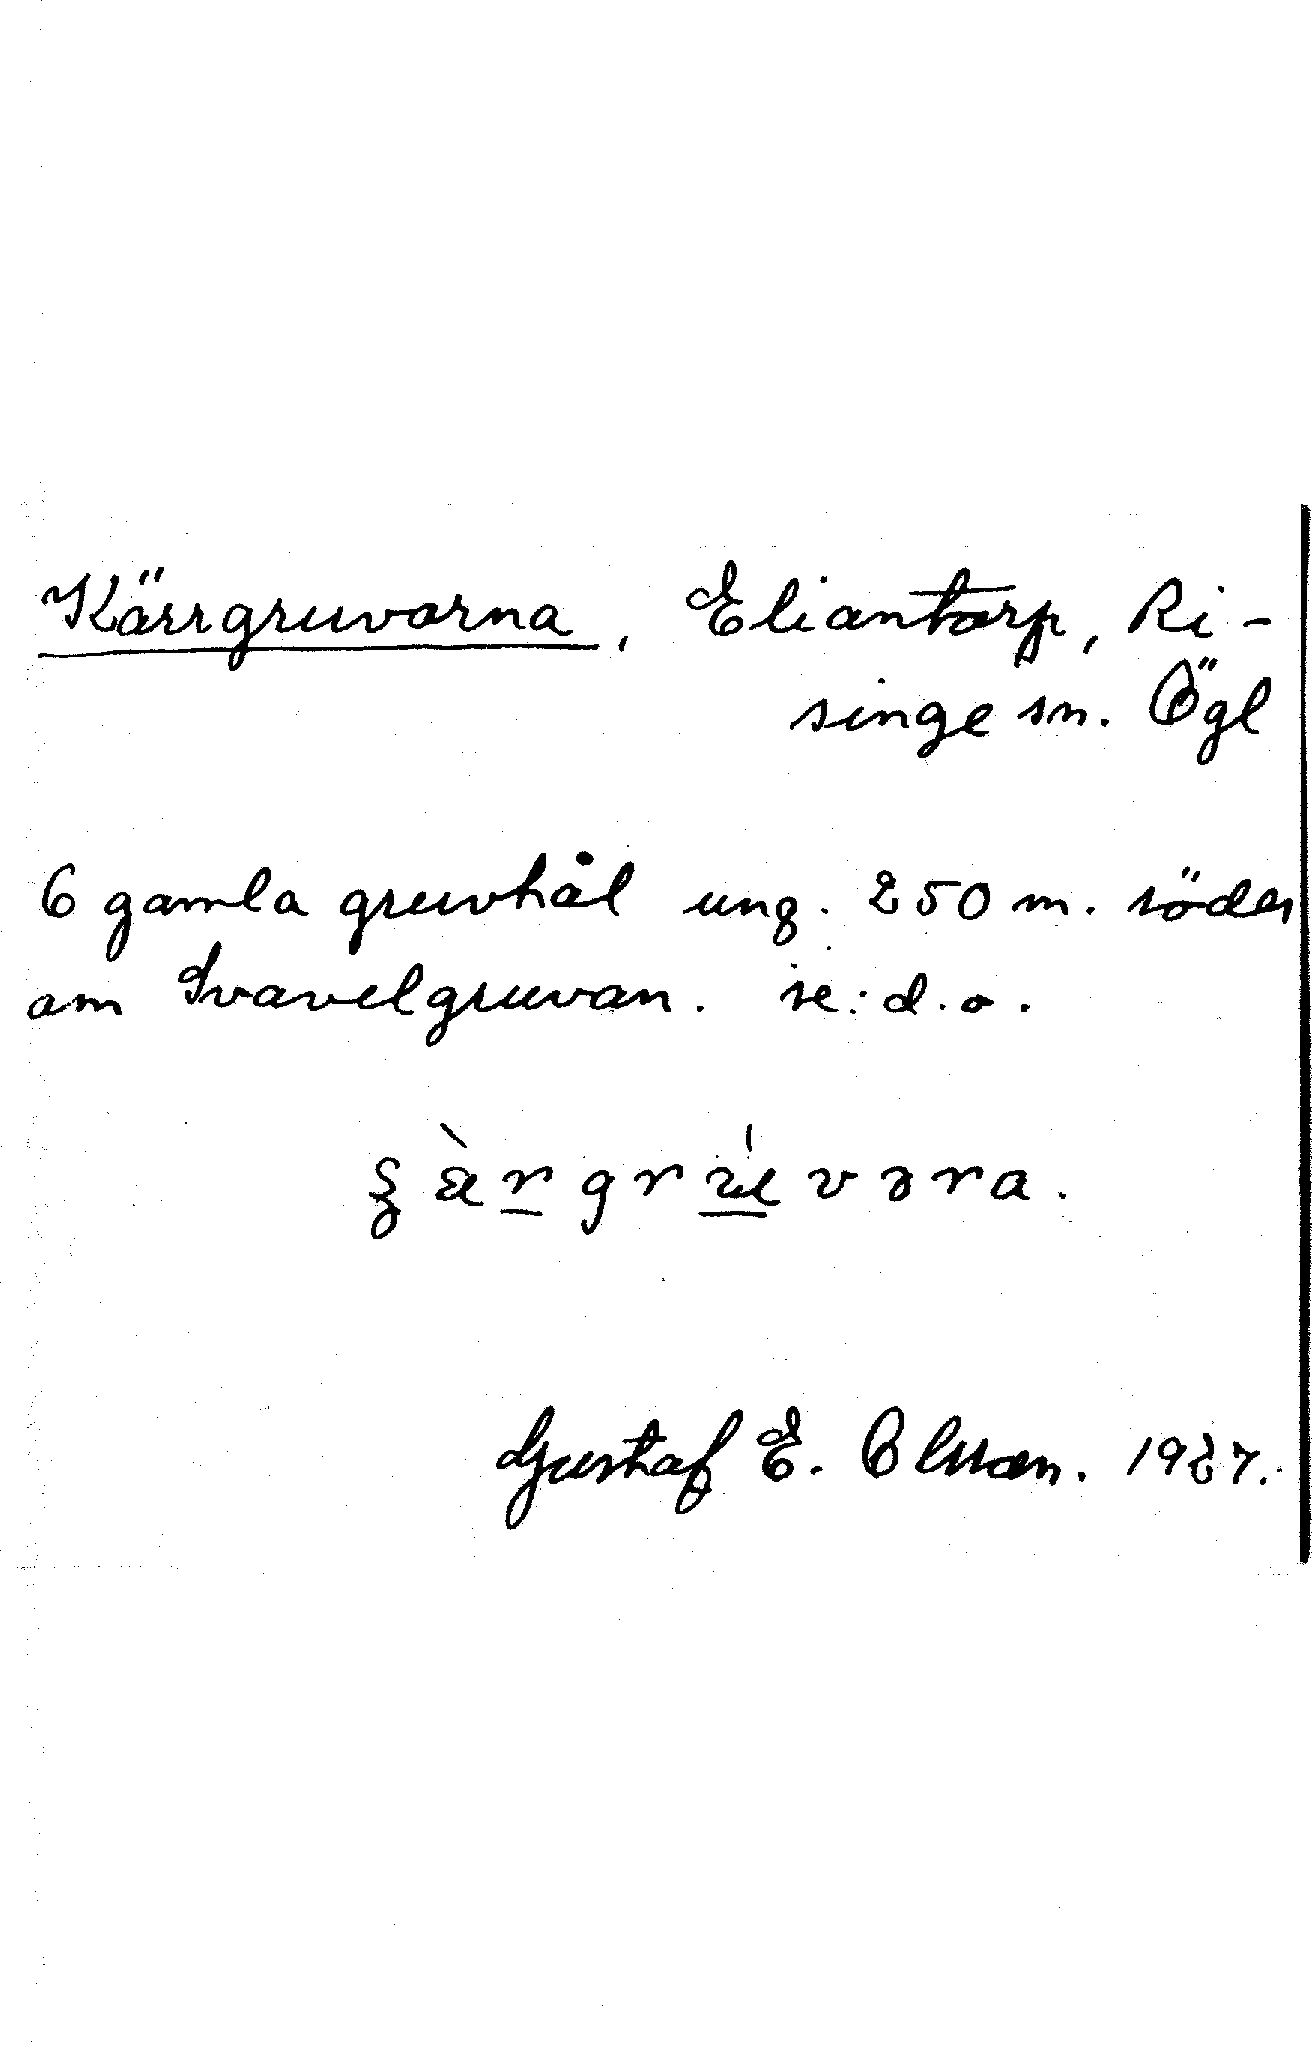 Kärrgruvorna, Eliantorp, Ri-
singe sn. Ögl
6 gamla gruvhål ung. 250 m. söder
om Svavelgruvan. se: d.o.
ʂæ̀r̲grú̲vəra.
Gustaf E. Olsson. 1927.